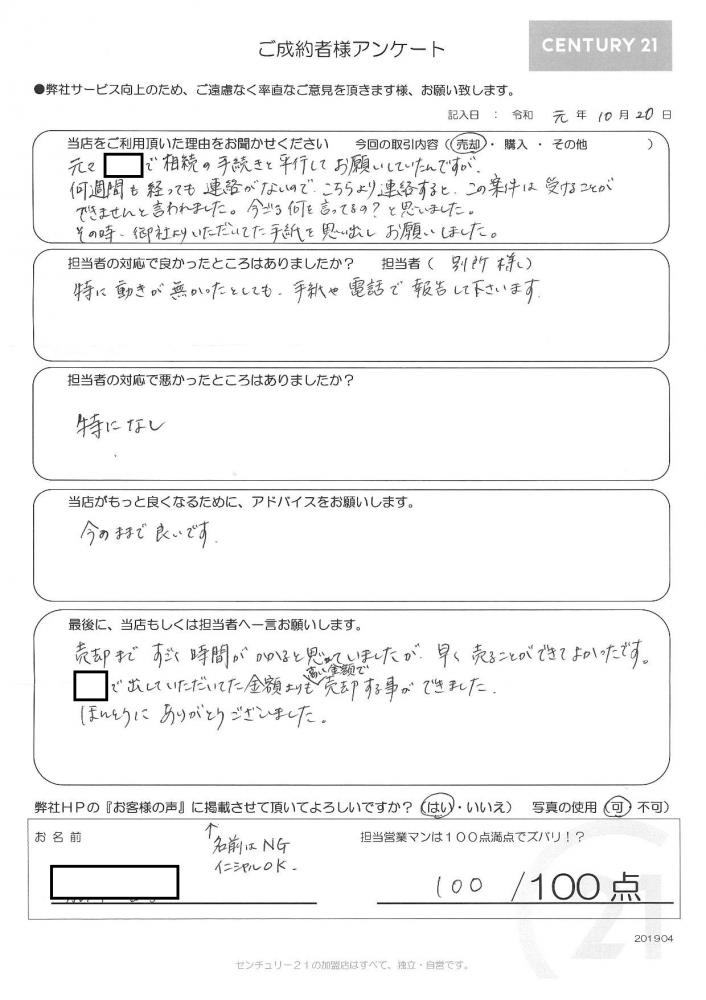 ご成約者様アンケート
CENTURY 21
●弊社サービス向上のため、ご遠慮なく率直なご意見を頂きます様、お願い致します。
記入日 : 令和 元 年 10 月 20 日
当店をご利用頂いた理由をお聞かせください 今回の取引内容 ( 売却 ・ 購入 ・ その他 )
元々 で相続の手続きと平行してお願いしていたんですが、
何週間も経っても連絡がないので、こちらより連絡すると、この案件は受けることが
できませんと言われました。今ごろ何を言ってるの?と思いました。
その時、御社よりいただいてた手紙を思い出しお願いしました。
担当者の対応で良かったところはありましたか? 担当者 ( 別所 様 )
特に動きが無かったとしても、手紙や電話で報告して下さいます。
担当者の対応で悪かったところはありましたか?
特になし
当店がもっと良くなるために、アドバイスをお願いします。
今のままで良いです。
最後に、当店もしくは担当者へ一言お願いします。
売却まですごく時間がかかると思っていましたが、早く売ることができてよかったです。
で出していただいてた金額よりも高い金額で売却する事ができました。
ほんとうにありがとうございました。
弊社HPの『お客様の声』に掲載させて頂いてよろしいですか? (はい・いいえ) 写真の使用 (可・不可)
お名前
↑
名前はNG
イニシャルOK.
担当営業マンは100点満点でズバリ!?
100 /100点
21
201904
センチュリー21の加盟店はすべて、独立・自営です。